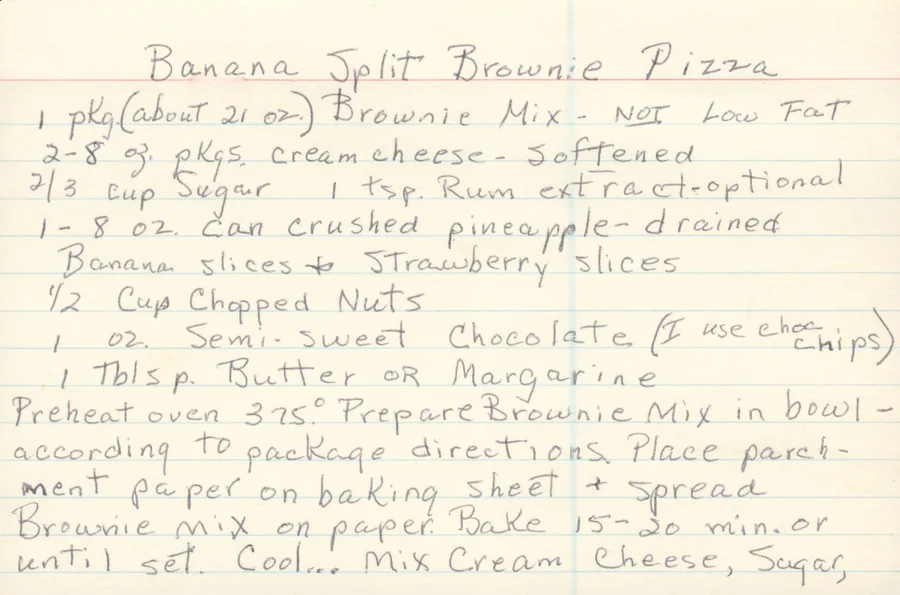 Banana Split Brownie Pizza
1 pkg (about 21 oz.) Brownie Mix - NOT Low Fat
2-8 oz. pkgs. cream cheese - Softened
2/3 cup Sugar 1 tsp. Rum extract-optional
1 - 8 oz. can crushed pineapple - drained
Banana slices + Strawberry slices
1/2 Cup Chopped Nuts
1 oz. Semi-sweet Chocolate (I use choc chips)
1 Tblsp. Butter OR Margarine
Preheat oven 375° Prepare Brownie Mix in bowl -
according to package directions. Place parch-
ment paper on baking sheet + spread
Brownie mix on paper. Bake 15-20 min. or
until set. Cool... Mix Cream Cheese, Sugar,